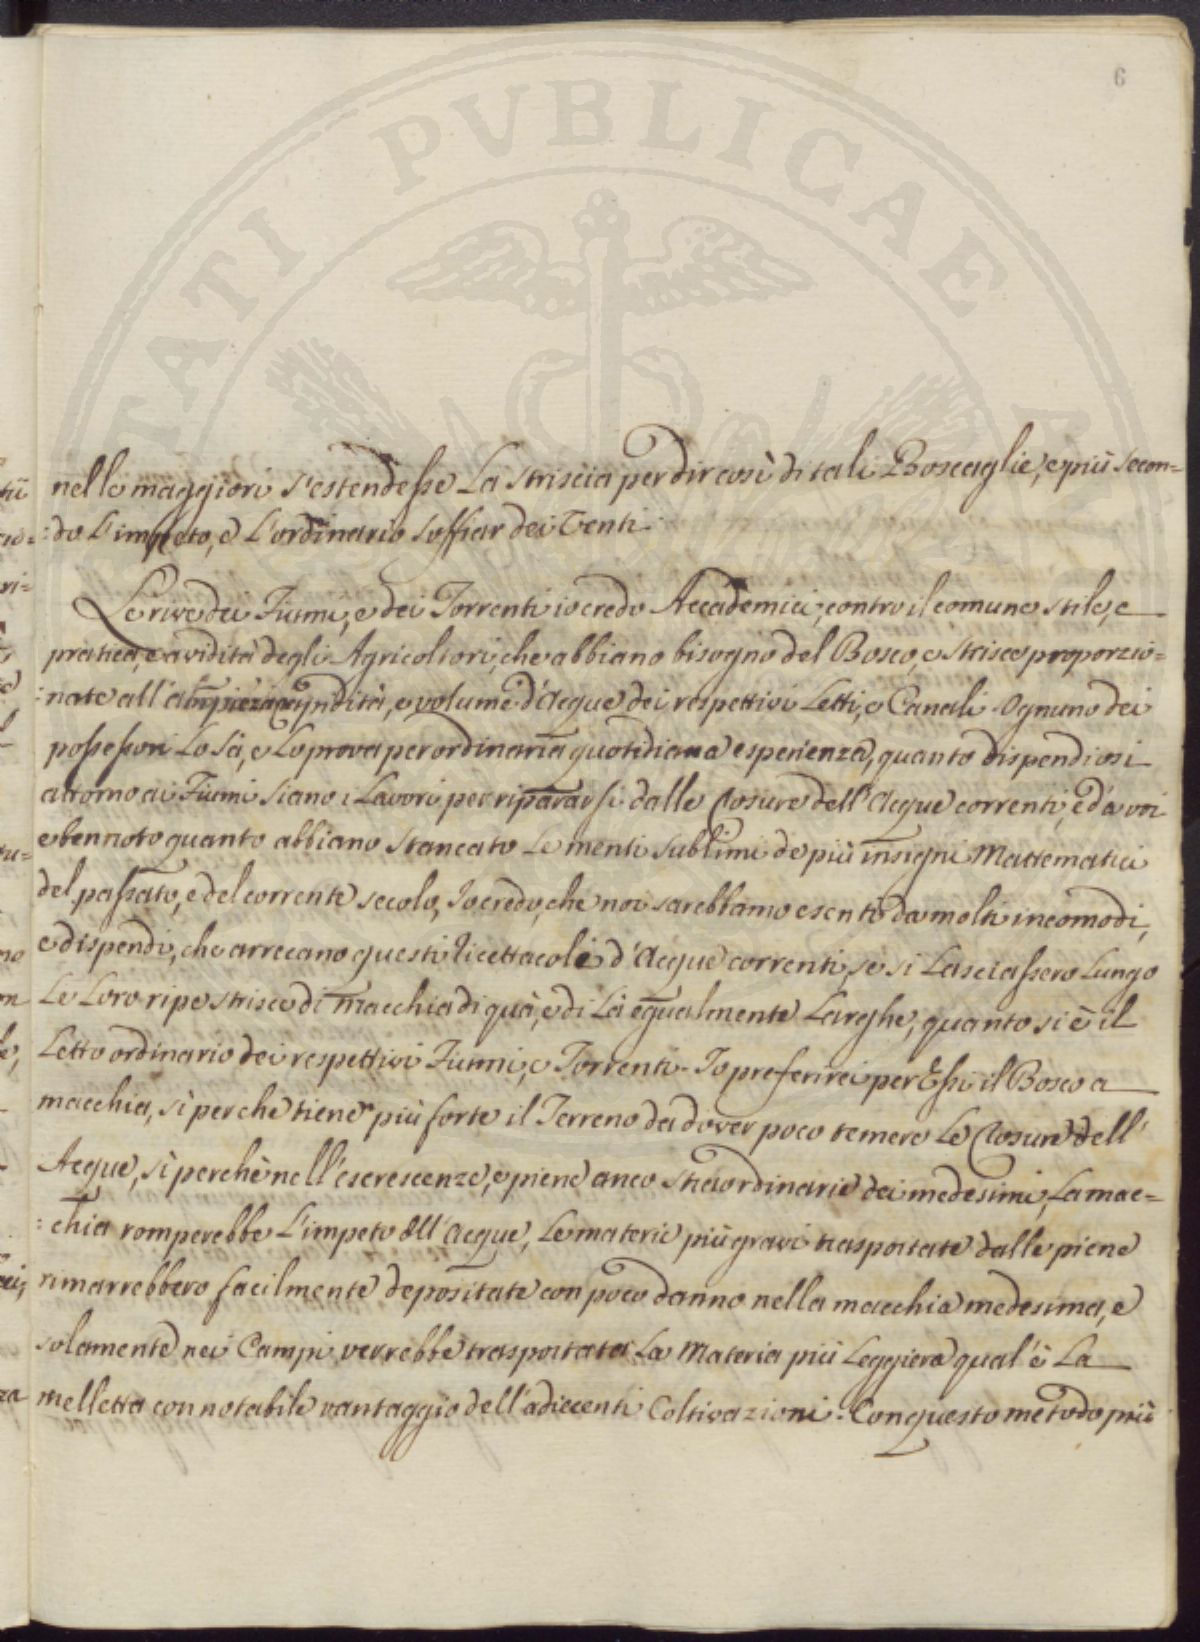 6
TATI PVBLICAE
nelle maggiori s'estendesse La striscia per dir così di tali Boscaglie, e più secon=
:do L'impeto, e L'ordinario soffiar dei Venti.
Le rive dei Fiumi, e dei Torrenti io credo Accademici, contro il comune stile, e
pratica, e avidità degli Agricoltori, che abbiano bisogno del Bosco, e Strisce proporzio=
:nate all' e volume d'Acque dei respettivi Letti, e Canali. Ognuno dei
possessori Lo Sà, e Lo prova per ordinaria quotidiana esperienza, quanto dispendiosi
attorno ai Fiumi siano i Lavori per ripararsi dalle Corsure dell'Acque correnti, ed'a voi
e ben noto quanto abbiano stancato Le menti sublimi de più insigni Mattematici
del passato, e del corrente secolo, Io credo, che noi sarebbamo esenti da molti incomodi,
e dispendi, che arrecano questi ricettacoli d'Acque correnti, se si Lasciassero Lungo
Le Loro ripe strisce di macchia di quà, e di Là egualmente Larghe, quanto si è il
Letto ordinario dei respettivi Fiumi, e Torrenti. Io preferirei per Essi il Bosco a
macchia, sì perche tiene più forte il Terreno da dover poco temere Le Corsure dell'
Acque, sì perchè nell'escrescenze, e piene anco straordinarie dei medesimi, La mac=
:chia romperebbe L'impeto dell'Acque, Le materie più gravi trasportate dalle piene
rimarrebbero facilmente depositate con poco danno nella macchia medesima, e
solamente nei Campi verrebbe trasportata La Materia più Leggiera qual'è La
melletta con notabile vantaggio dell'adiecenti Coltivazioni. Con questo metodo più